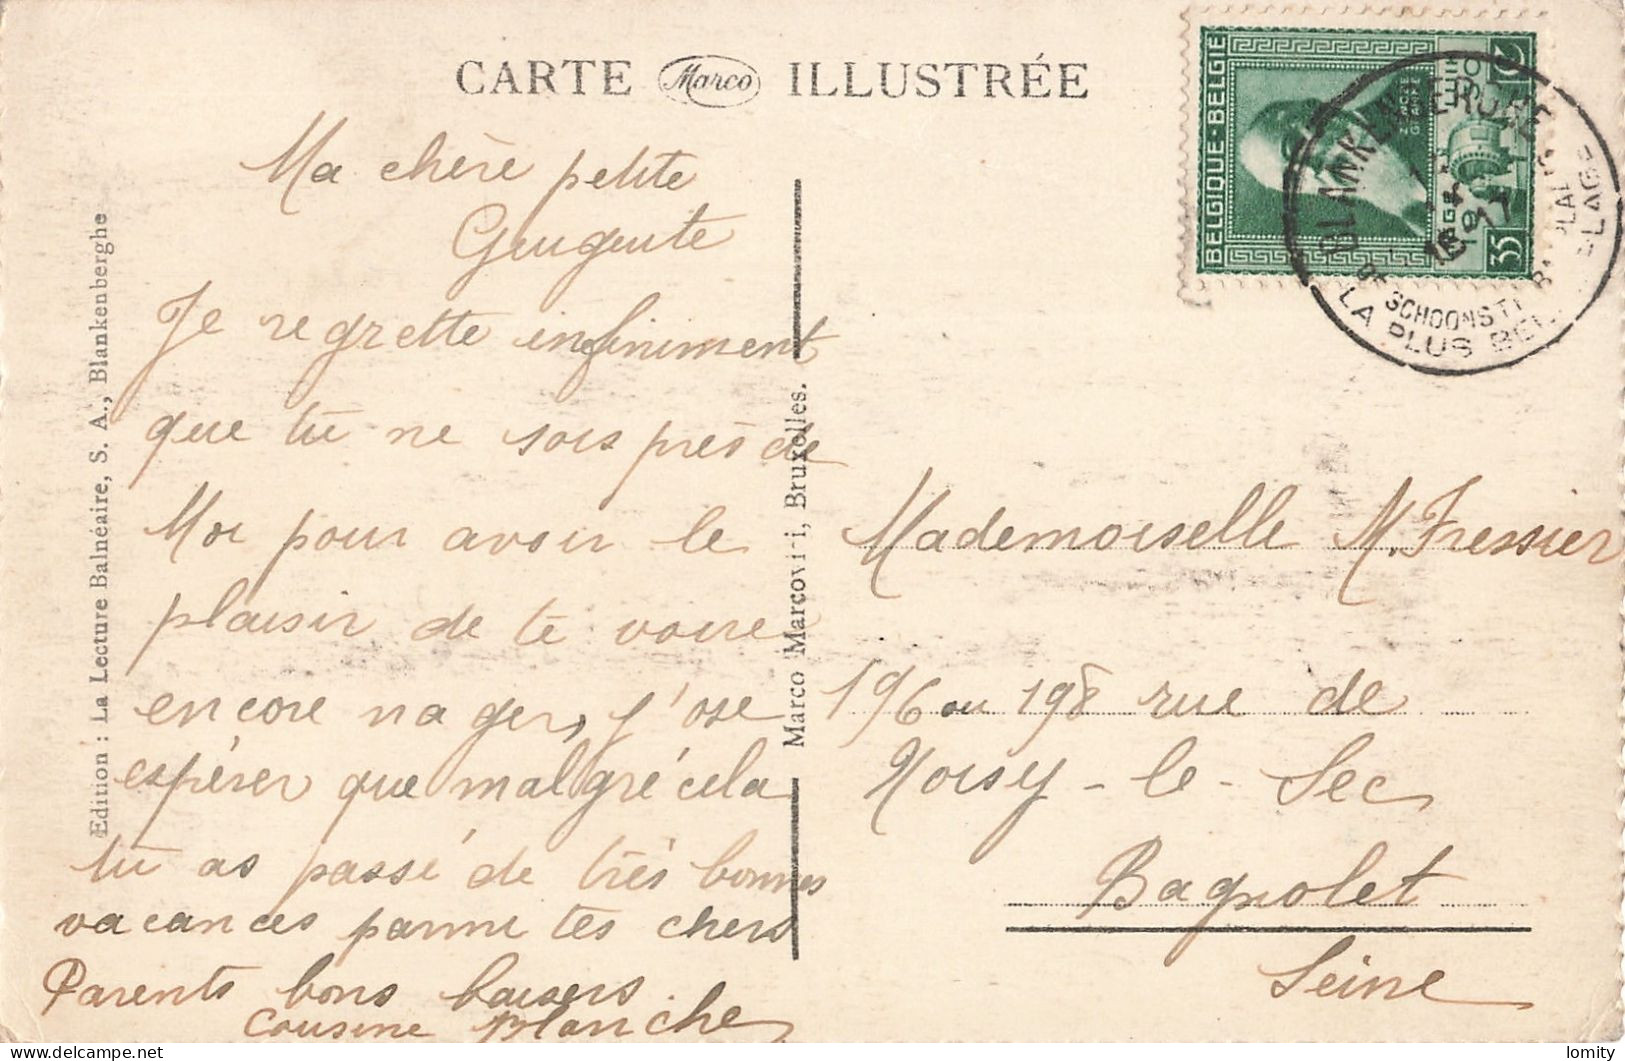 CARTE Marco ILLUSTRÉE
Ma chère petite
Gengente
Je regrette infiniment
que tu ne sois près de
Moi pour avoir le
plaisir de te voire
encore nager, j'ose
espérer que malgré cela
tu as passé de très bonnes
vacances parmi tes chers
Parents bons baisers.
cousine Planche
Edition : La Lecture Balnéaire, S. A., Blankenberghe
Marco Marcovici, Bruxelles.
BELGIQUE-BELGIE
35
BLANKENBERGHE
SCHOONSTE
LA PLUS BELLE PLAGE
Mademoiselle M. Fressier
196 ou 198 rue de
Noisy-le-Sec
Bagnolet
Seine
lomity